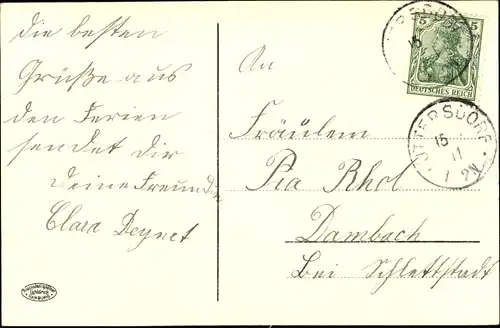 Die besten
Grüße aus
den Ferien
sendet Dir
Deine Freundin
Clara Reynet
An
Fräulein
Pia Rhol
Dambach
Bei Schlettstadt
5 5
DEUTSCHES REICH
ITTERSDORF
15
11
1-2N